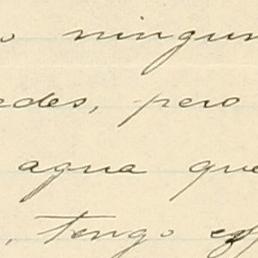 o ningun
edes, pero
agua que
, tengo